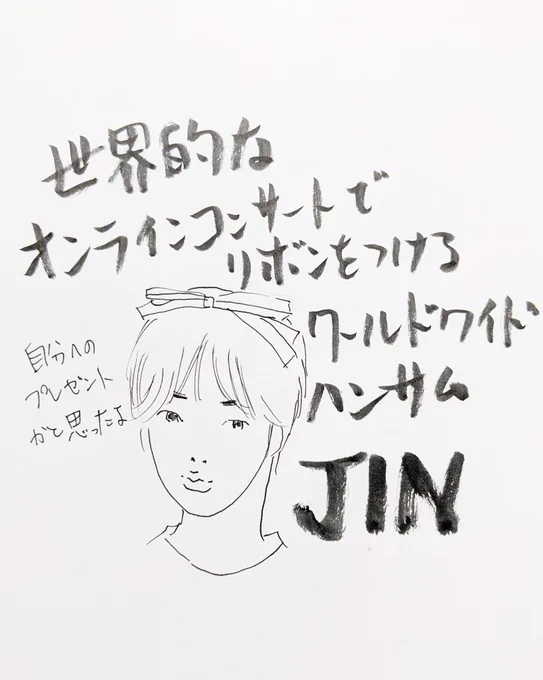 世界的な
オンラインコンサートで
リボンをつける
ワールドワイド
ハンサム
JIN
自分への
プレゼント
かと思ったよ